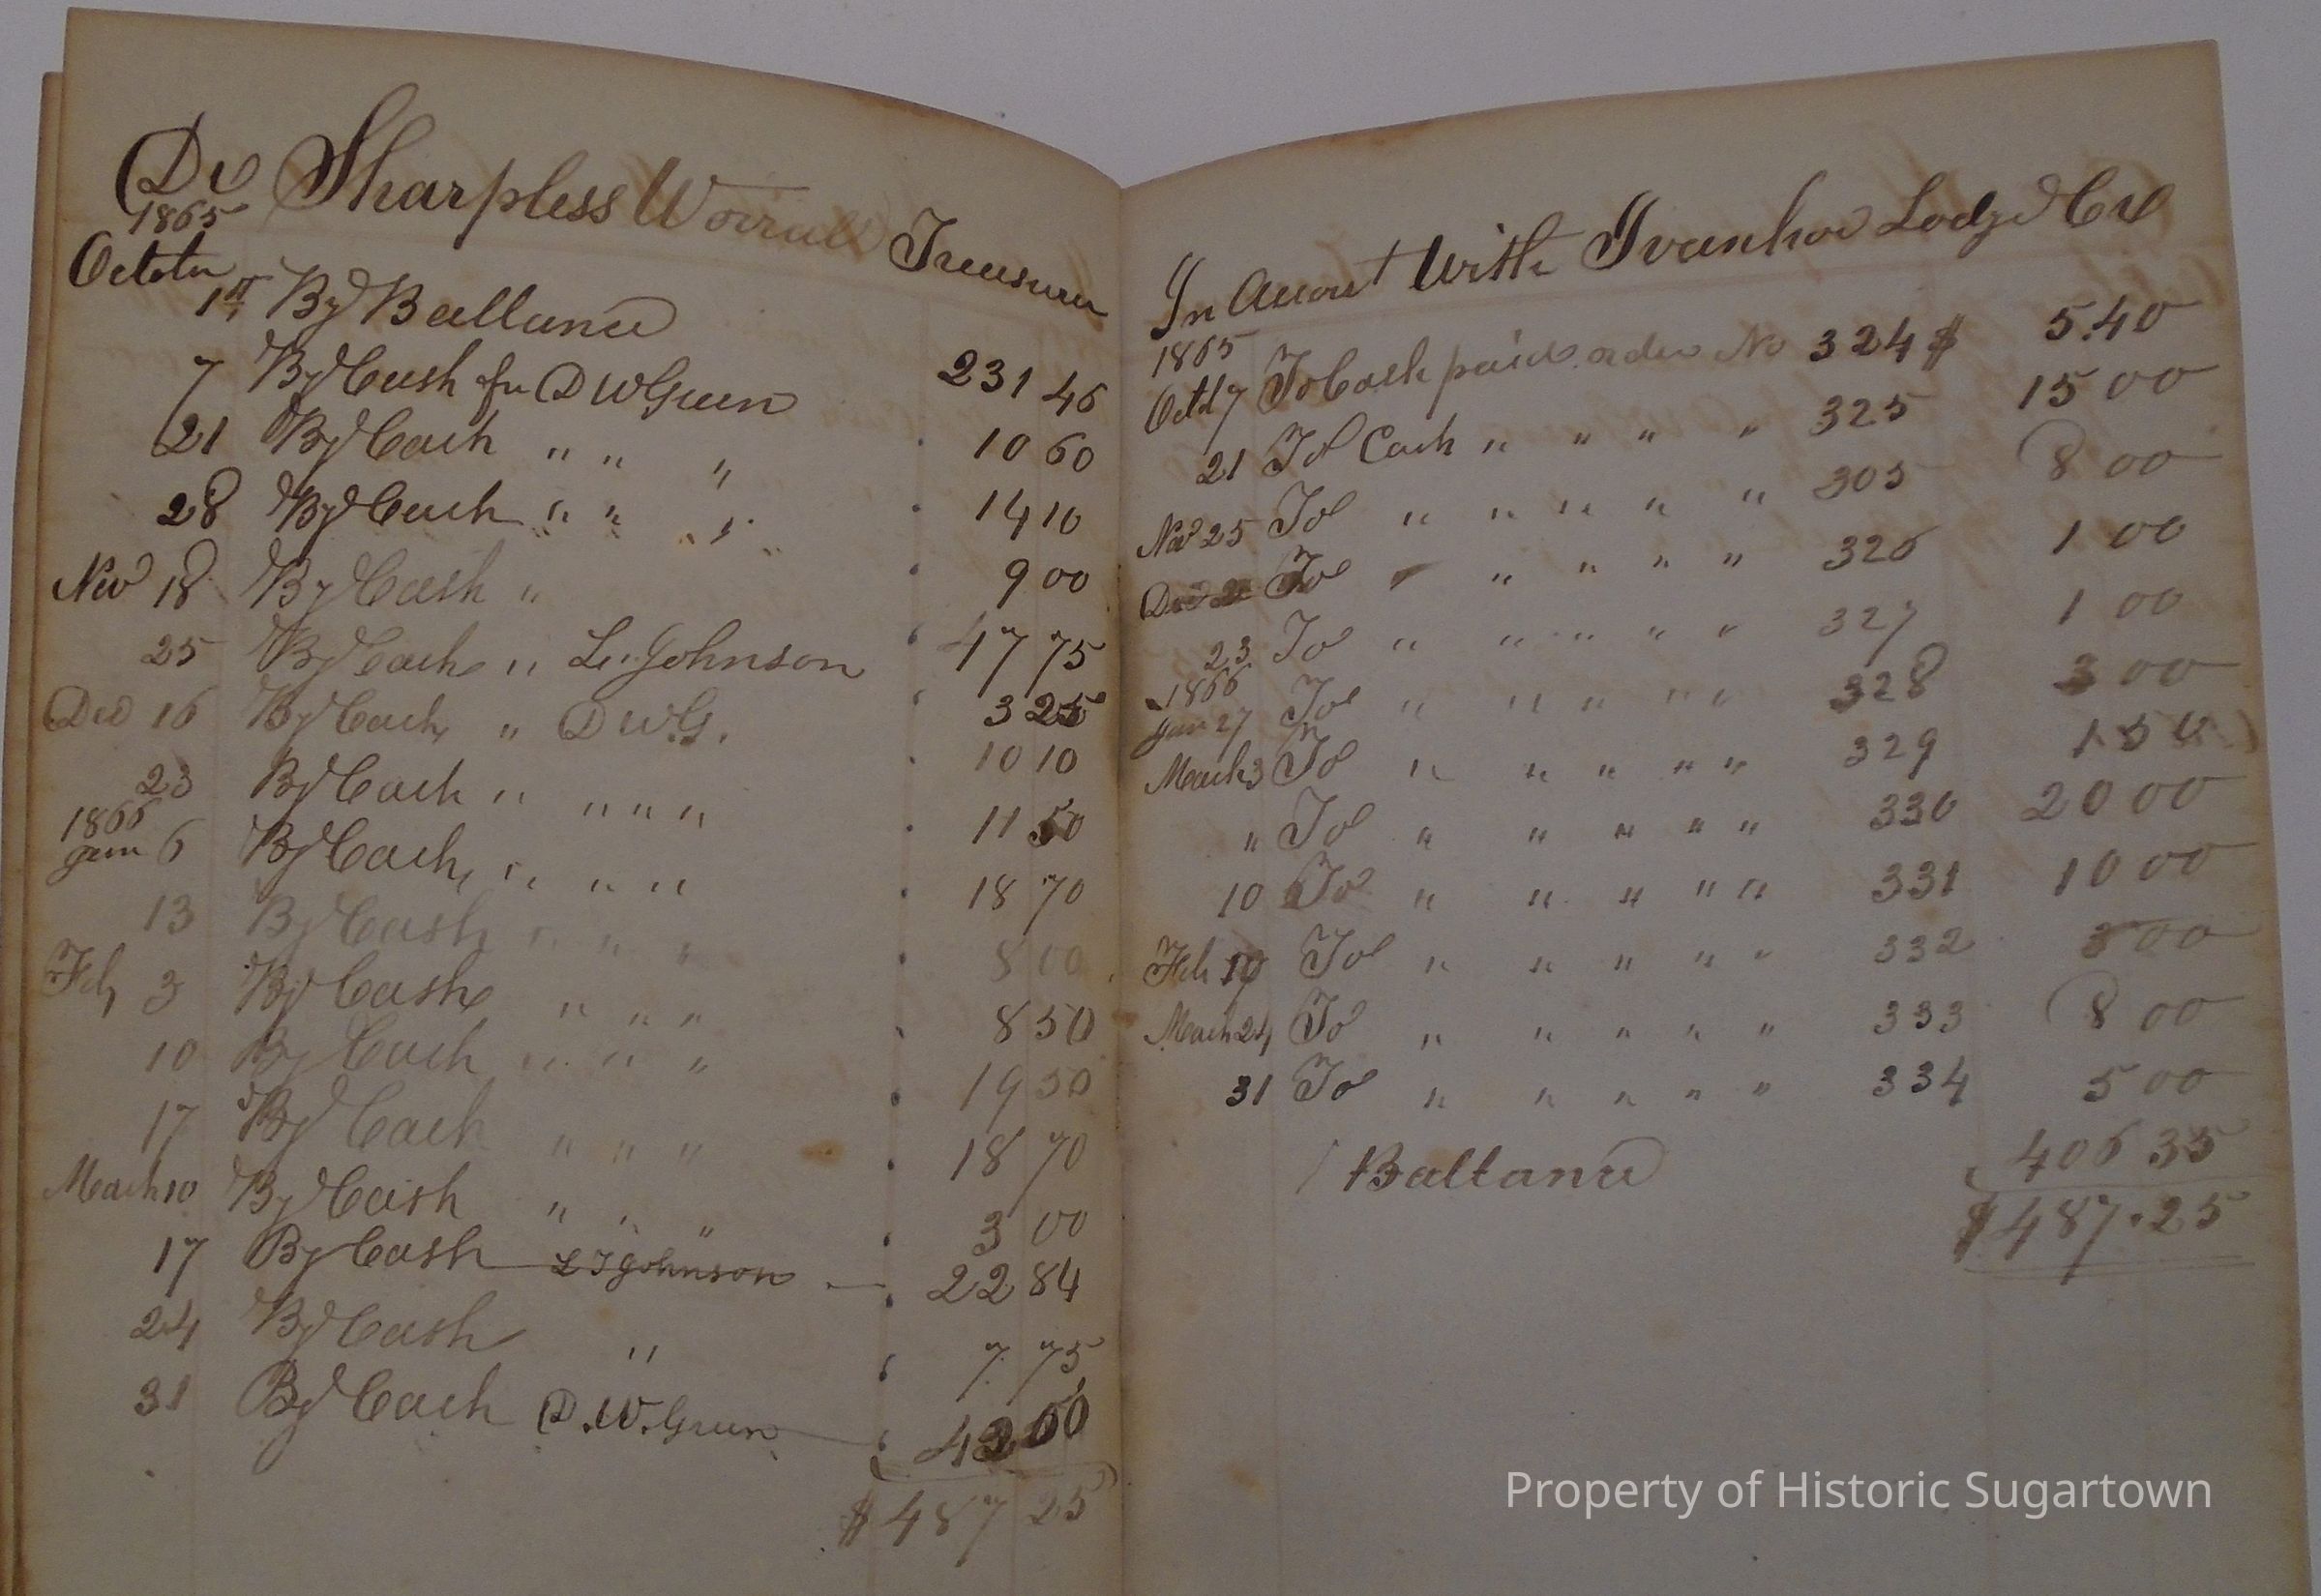 Dr Sharpless Worrall Treasurer
1865
October
1st By Ballance 231 46
7 By Cash fr D W Green 10 60
21 By Cash " " " 14 10
28 By Cash " " " 9 00
Nov 18 By Cash " 47 75
25 By Cash " L. Johnson 3 25
Dec 16 By Cash, " D W.G. 10 10
23 By Cash " " " " 11 50
1866
Jan 6 By Cash, " " " 18 70
13 By Cash " " " 8 00
Feb 3 By Cash " " " 8 50
10 By Cash " " " 19 50
17 By Cash " " " 18 70
March 10 By Cash " " " 3 00
17 By Cash L J Johnson 22 84
24 By Cash " 7 75
31 By Cash D. W. Green
$ 487 25
In Account With Ivanhoe Lodge Cr
1865
Oct 7 To Cash paid order No 324 $ 5.40
21 To Cash " " " " 325 15 00
Nov 25 To " " " " " 305 8 00
Dec To " " " " 326 1 00
23 To " " " " " 327 1 00
1866
Jan 27 To " " " " " 328 3 00
March 3 To " " " " " 329 1 50
" To " " " " " 330 20 00
10 To " " " " " 331 10 00
Feb 10 To " " " " " 332 3 00
March 24 To " " " " " 333 8 00
31 To " " " " " 334 5 00
Ballance 406 35
$487.25
Property of Historic Sugartown